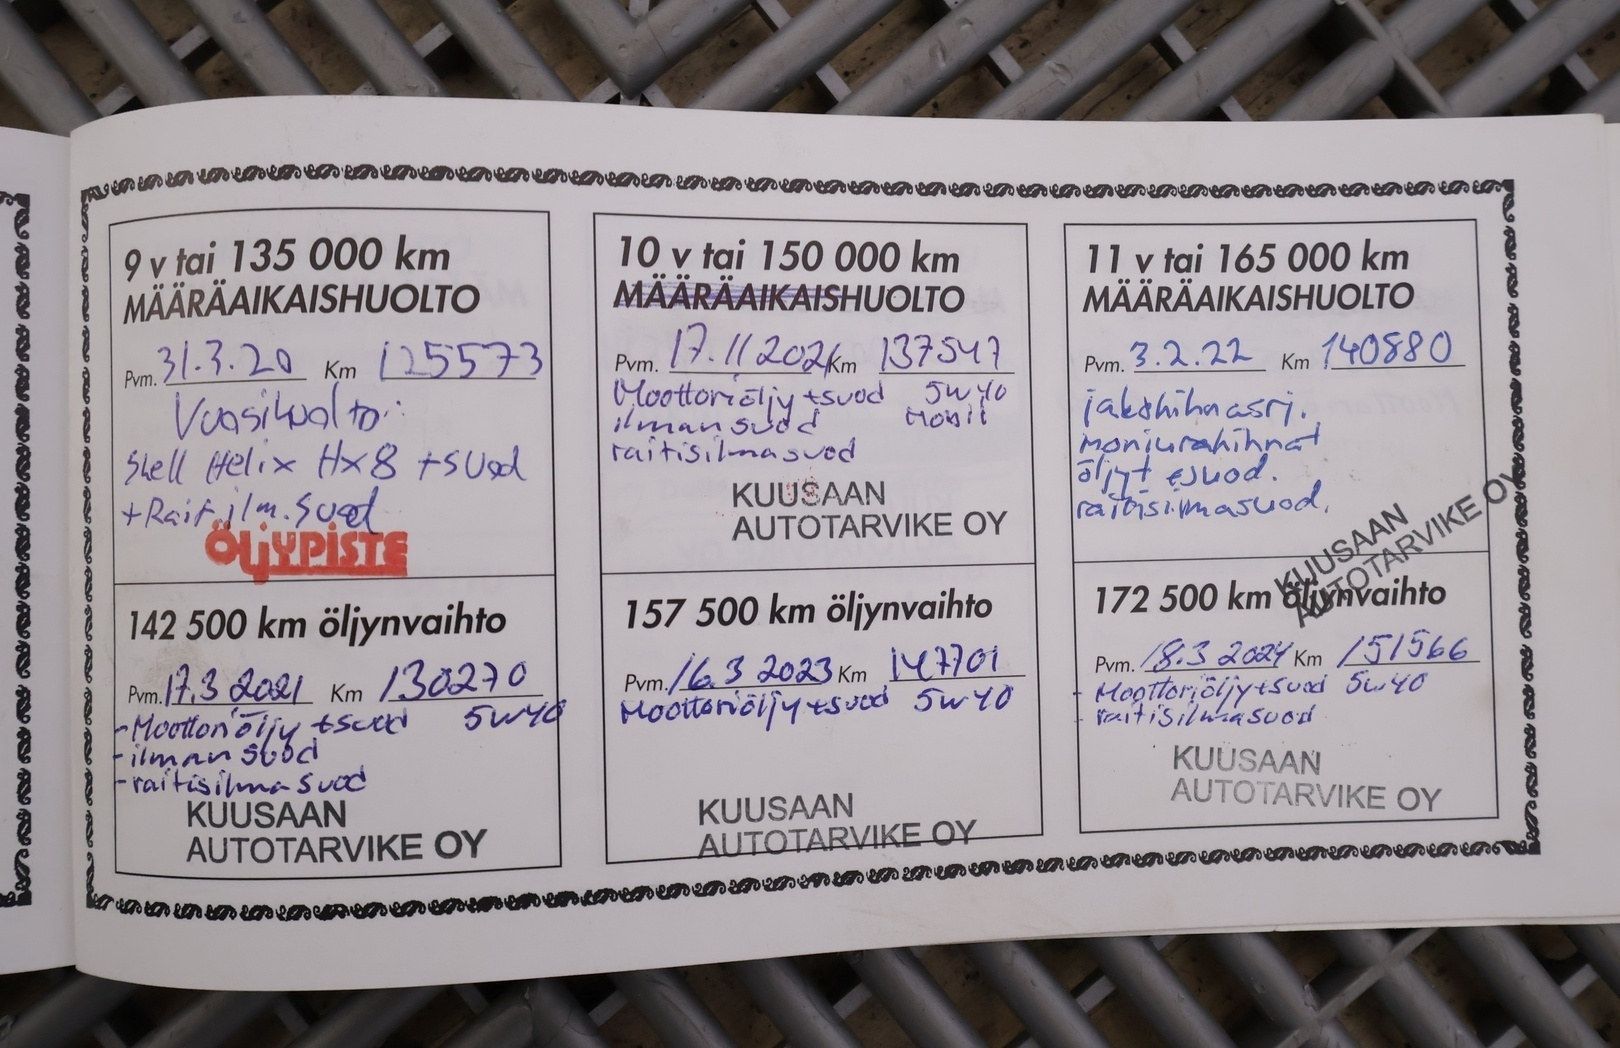 9 v tai 135 000 km
MÄÄRÄAIKAISHUOLTO
Pvm. 31.3.20 Km 125573
Vuosihuolto:
Shell Helix Hx8 +suod
+Rait.ilm.suod
ÖLJYPISTE
142 500 km öljynvaihto
Pvm. 17.3.2021 Km 130270
-Moottoriöljy +suod 5w40
-ilman suod
-raitisilmasuod
KUUSAAN
AUTOTARVIKE OY
10 v tai 150 000 km
MÄÄRÄAIKAISHUOLTO
Pvm. 17.11 2021 Km 137547
Moottoriöljy +suod 5w40
ilmansuod Mobil
raitisilmasuod
KUUSAAN
AUTOTARVIKE OY
157 500 km öljynvaihto
Pvm. 16.3 2023 Km 147701
Moottoriöljy +suod 5w40
KUUSAAN
AUTOTARVIKE OY
11 v tai 165 000 km
MÄÄRÄAIKAISHUOLTO
Pvm. 3.2.22 Km 140880
jakohihnasrj.
moniurahihnat
öljyt suod.
raitisilmasuod.
KUUSAAN
AUTOTARVIKE OY
172 500 km öljynvaihto
Pvm. 18.3 2024 Km 151566
- Moottoriöljy +suod 5w40
- raitisilmasuod
KUUSAAN
AUTOTARVIKE OY